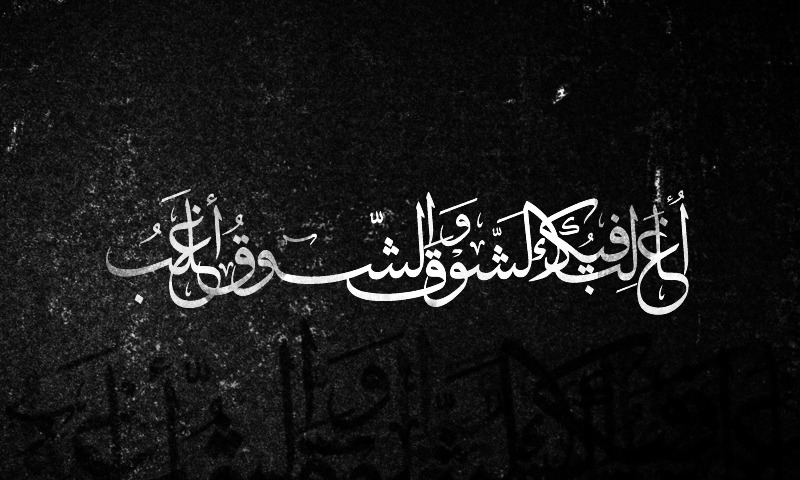 أُغالِبُ فيكَ الشَّوْقَ وَالشَّوقُ أَغلَبُ